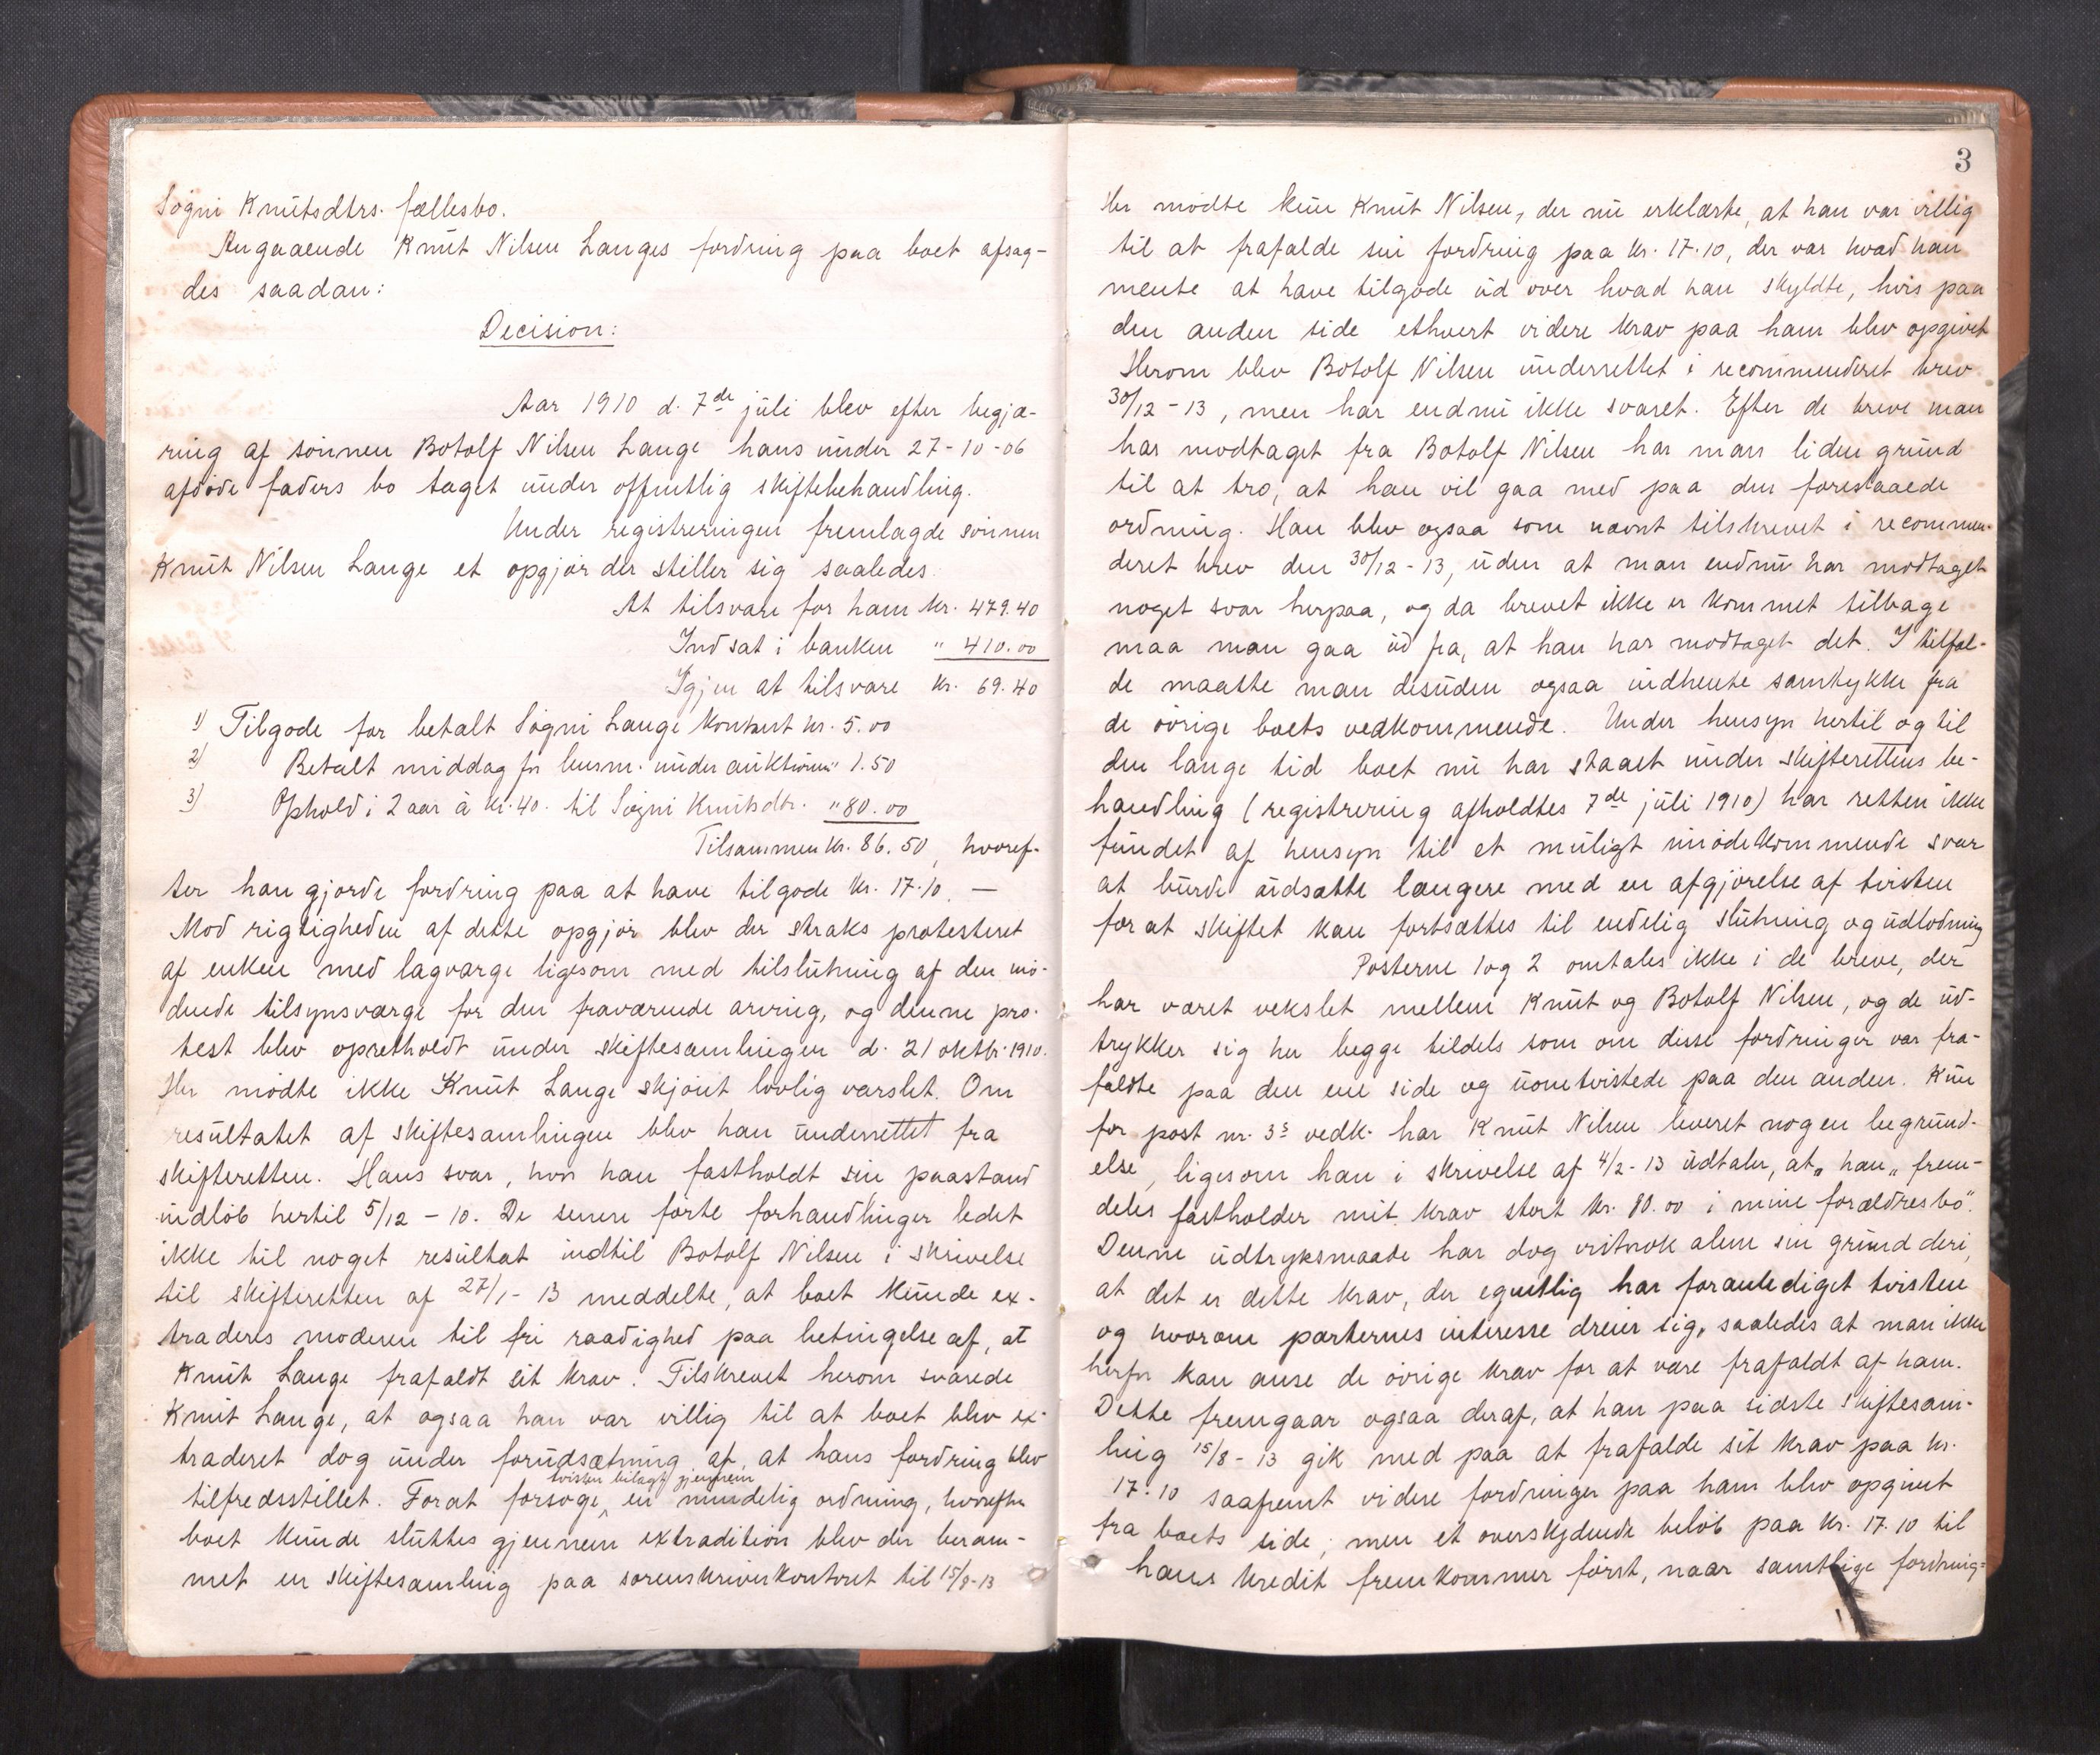 Søgni Knutsdtrs. fællesbo.
Angaaende Knut Nilsen Langes fordring paa boet afsag-
des saadan:
Decision:
Aar 1910 d. 7de juli blev efter begjæ-
ring af sønnen Botolf Nilsen Lange hans under 27-10-06
afdøde faders bo taget under offentlig skiftebehandling.
Under registreringen fremlagde sønnen
Knut Nilsen Lange et opgjør der stiller sig saaledes:
At tilsvare for ham kr. 479.40
Indsat i banken " 410.00
Igjen at tilsvare kr. 69.40
1) Tilgode for betalt Søgni Lange kontant kr. 5.00
2) Betalt middag for lensm. under auktionen " 1.50
3) Ophold i 2 aar à kr. 40. til Søgni Knutsdtr. " 80.00
Tilsammen kr. 86.50, hvoref-
ter han gjorde fordring paa at have tilgode kr. 17.10. —
Mod rigtigheden af dette opgjør blev der straks protesteret
af enken med lagværge ligesom med tilslutning af den mø-
dende tilsynsværge for den fraværende arving, og denne pro-
test blev opretholdt under skiftesamlingen d. 21 oktbr. 1910.
Her mødte ikke Knut Lange skjønt lovlig varslet. Om
resultatet af skiftesamlingen blev han underrettet fra
skifteretten. Hans svar, hvor han fastholdt sin paastand
indløb hertil 5/12 - 10. De senere førte forhandlinger ledet
ikke til noget resultat indtil Botolf Nilsen i skrivelse
til skifteretten af 27/1 - 13 meddelte, at boet kunde ex-
traderes moderen til fri raadighed paa betingelse af, at
Knut Lange frafaldt sit krav. Tilskrevet herom svarede
Knut Lange, at ogsaa han var villig til at boet blev ex-
traderet dog under forudsætning af, at hans fordring blev
tvisten bilagt gjennem
tilfredsstillet. Forat forsøge en mindelig ordning, hvorefter
boet kunde sluttes gjennem extradition blev der beram-
met en skiftesamling paa sorenskriverkontoret til 15/8-13
3
Her mødte kun Knut Nilsen, der nu erklærte, at han var villig
til at frafalde sin fordring paa kr. 17.10, der var hvad han
mente at have tilgode ud over hvad han skyldte, hvis paa
den anden side ethvert videre krav paa ham blev opgivet
Herom blev Botolf Nilsen underrettet i recommenderet brev
30/12 - 13, men har endnu ikke svaret. Efter de breve man
har modtaget fra Botolf Nilsen har man liden grund
til at tro, at han vil gaa med paa den forestaaede
ordning. Han blev ogsaa som nævnt tilskrevet i recommen-
deret brev den 30/12 - 13, uden at man endnu har modtaget
noget svar herpaa, og da brevet ikke er kommet tilbage
maa man gaa ud fra, at han har modtaget det. I tilfæl-
de maatte man desuden ogsaa indhente samtykke fra
de øvrige boets vedkommende. Under hensyn hertil og til
den lange tid boet nu har staaet under skifterettens be-
handling (registrering afholdtes 7de juli 1910) har retten ikke
fundet af hensyn til et muligt imødekommende svar
at burde udsætte længere med en afgjørelse af tvisten
for at skiftet kan fortsættes til endelig slutning og udlodning
Posterne 1 og 2 omtales ikke i de breve, der
har været vekslet mellem Knut og Botolf Nilsen, og de ud-
trykker sig her begge tildels som om disse fordringer var fra-
faldte paa den ene side og uomtvistede paa den anden. Kun
for post nr. 3s vedk. har Knut Nilsen leveret nogen begrund-
else, ligesom han i skrivelse af 4/2 - 13 udtaler, at „ han „ frem-
deles fastholder mit krav stort kr. 80.00 i mine forældresbo".
Denne udtryksmaade har dog vistnok alene sin grund deri,
at det er dette krav, der egentlig har foranlediget tvisten
og hvorom parternes interesse dreier sig, saaledes at man ikke
herfor kan anse de øvrige krav for at være frafaldt af ham.
Dette fremgaar ogsaa deraf, at han paa sidste skiftesam-
ling 15/8 - 13 gik med paa at frafalde sit krav paa kr.
17.10 saafremt videre fordringer paa ham blev opgivet
fra boets side; men et overskydende beløb paa kr. 17.10 til
hans kredit fremkommer først, naar samtlige fordring-